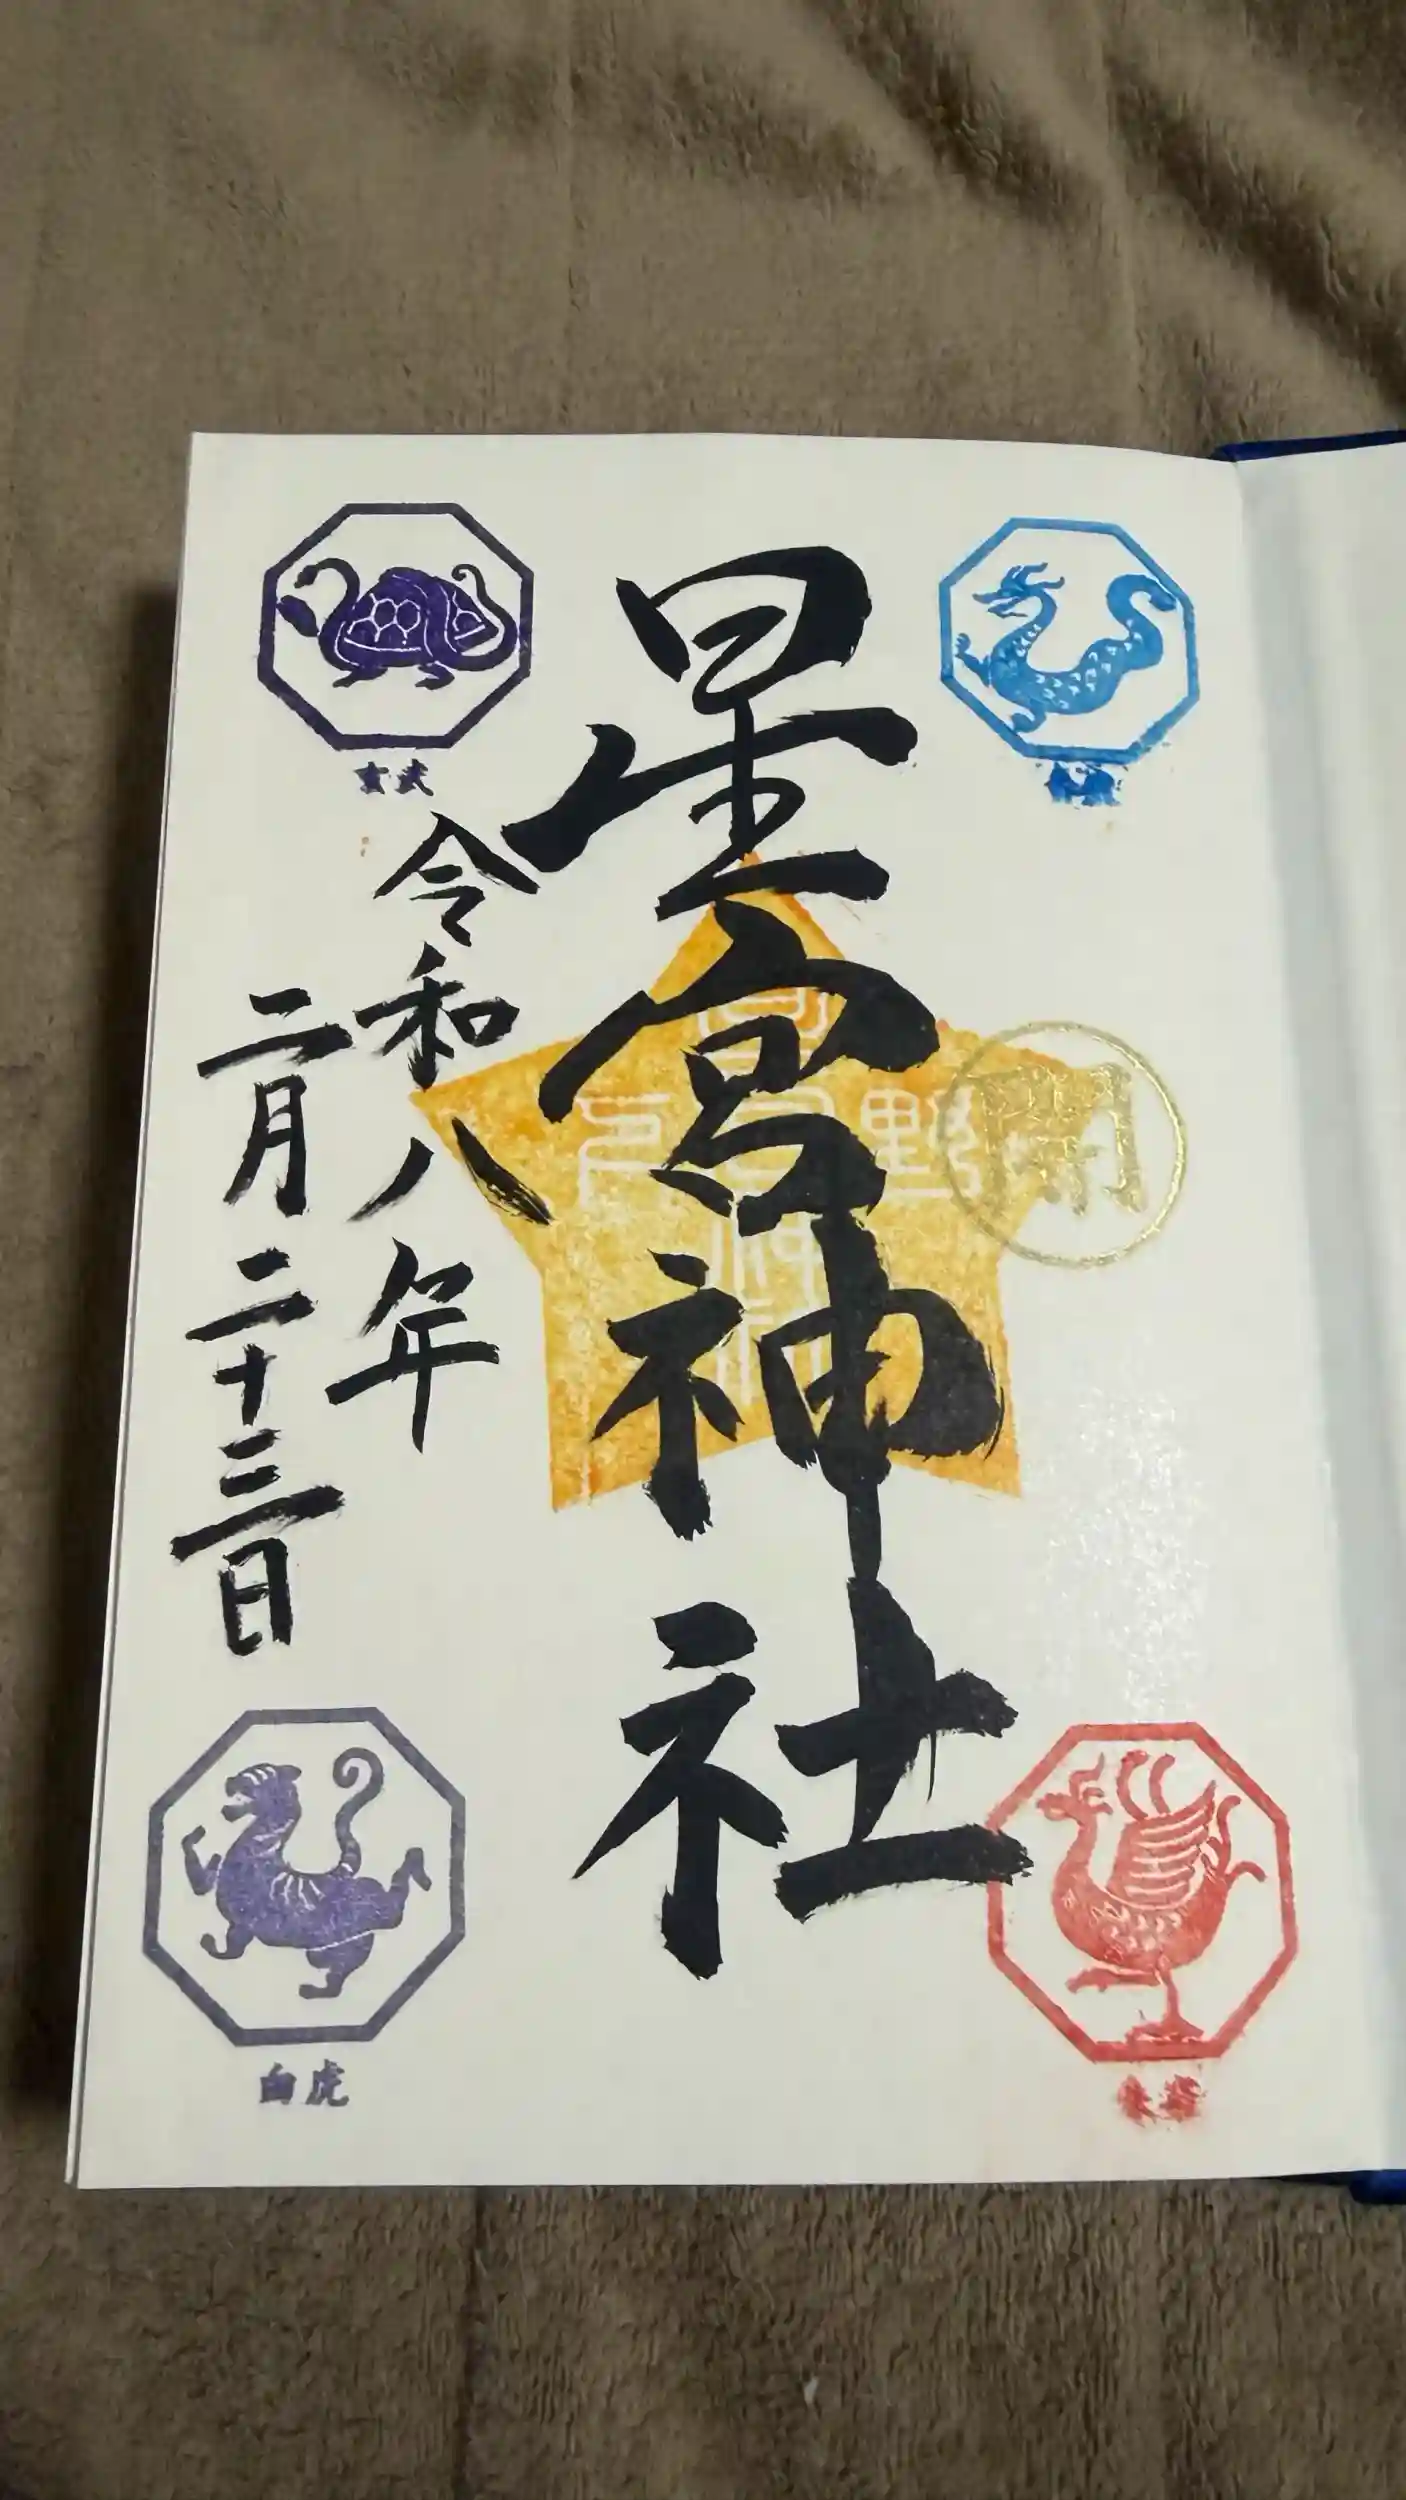 星宮神社
開
令和八年
二月二十三日
玄武
白虎
朱雀